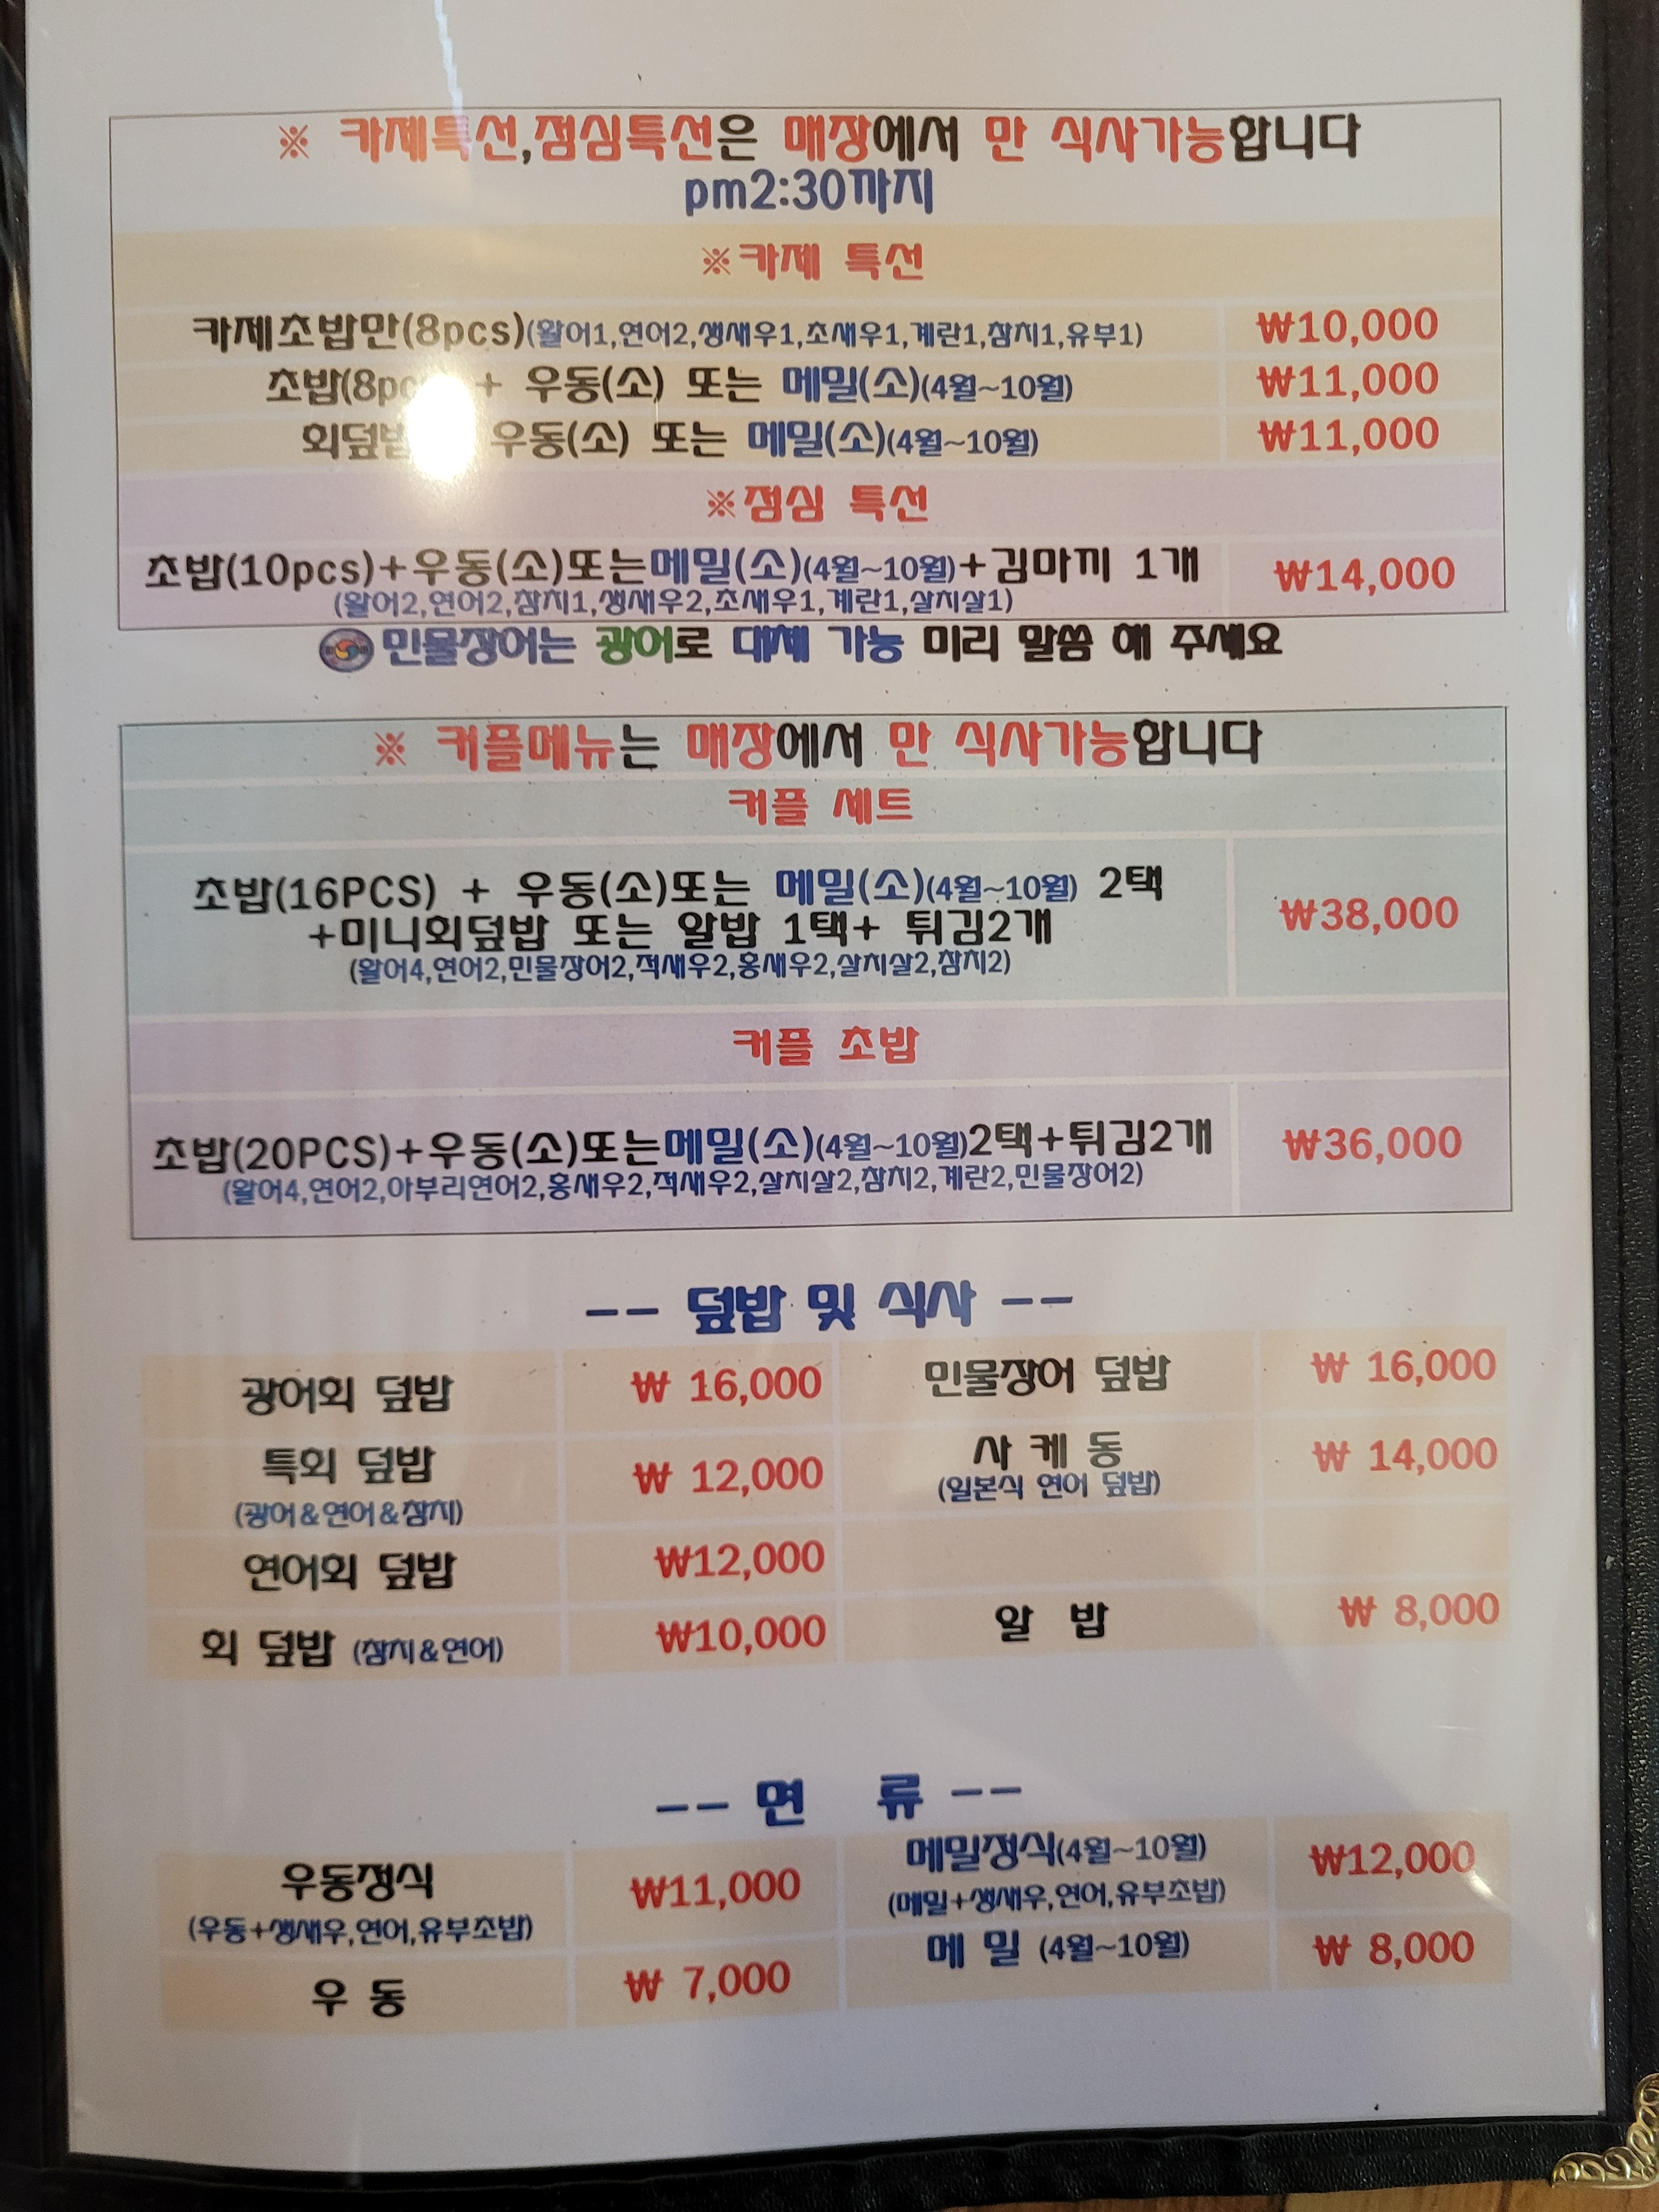 ※ 카제특선,점심특선은 매장에서 만 식사가능합니다
pm2:30까지
※카제 특선
카제초밥만(8pcs)(활어1,연어2,생새우1,초새우1,계란1,참치1,유부1) ₩10,000
초밥(8pc + 우동(소) 또는 메밀(소)(4월~10월) ₩11,000
회덮밥 우동(소) 또는 메밀(소)(4월~10월) ₩11,000
※점심 특선
초밥(10pcs)+우동(소)또는메밀(소)(4월~10월)+김마끼 1개 ₩14,000
(활어2,연어2,참치1,생새우2,초새우1,계란1,살치살1)
민물장어는 광어로 대체 가능 미리 말씀 해 주세요
※ 커플메뉴는 매장에서 만 식사가능합니다
커플 세트
초밥(16PCS) + 우동(소)또는 메밀(소)(4월~10월) 2택
+미니회덮밥 또는 알밥 1택+ 튀김2개 ₩38,000
(활어4,연어2,민물장어2,적새우2,홍새우2,살치살2,참치2)
커플 초밥
초밥(20PCS)+우동(소)또는메밀(소)(4월~10월)2택+튀김2개 ₩36,000
(활어4,연어2,아부리연어2,홍새우2,적새우2,살치살2,참치2,계란2,민물장어2)
-- 덮밥 및 식사 --
광어회 덮밥 ₩ 16,000 민물장어 덮밥 ₩ 16,000
특회 덮밥 ₩ 12,000 사 케 동 ₩ 14,000
(광어&연어&참치) (일본식 연어 덮밥)
연어회 덮밥 ₩12,000
회 덮밥 (참치&연어) ₩10,000 알 밥 ₩ 8,000
-- 면 류 --
우동정식 ₩11,000 메밀정식(4월~10월) ₩12,000
(우동+생새우,연어,유부초밥) (메밀+생새우,연어,유부초밥)
우 동 ₩ 7,000 메 밀 (4월~10월) ₩ 8,000